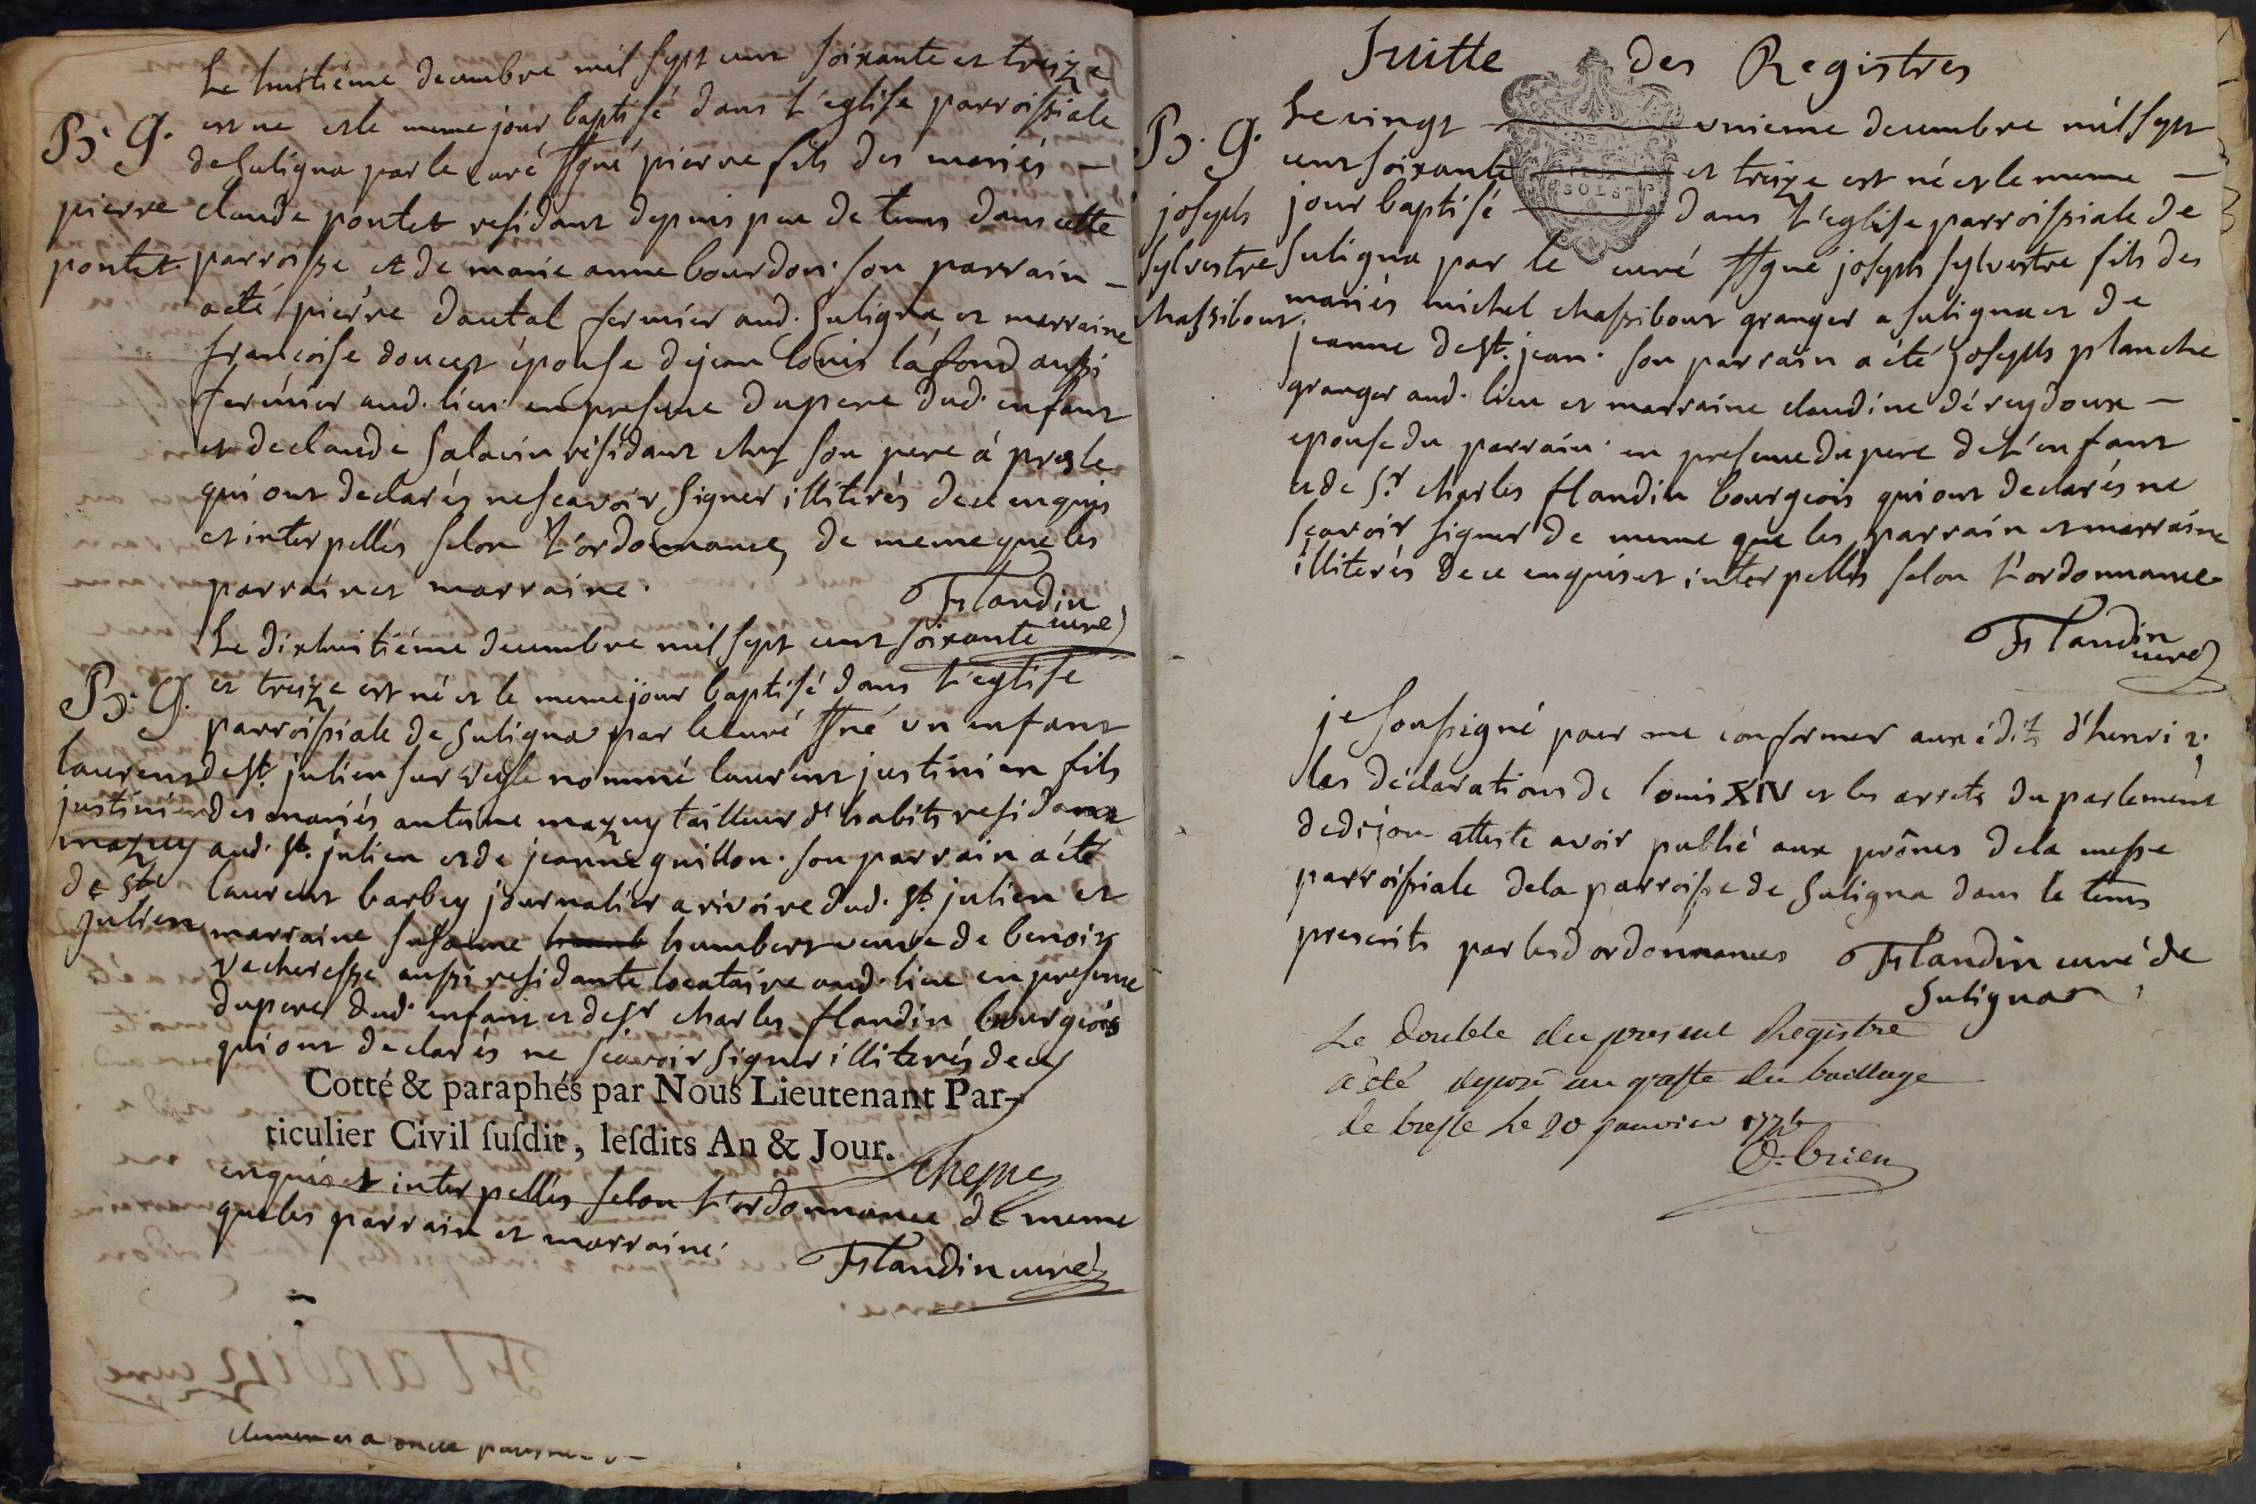 Le huitiéme decembre mil sept cent soixante et treize
B. G. est ne et le meme jour baptisé dans l'eglise parroissiale
de Suligna par le curé ssgné pierre fils des mariés –
pierre claude pontet residant depuis peu de tems dans cette
pontet. parroisse et de marie anne bourdon. son parrain –
a été pierre dautal fermier aud. Suligna et marraine
francoise doucet épouse de jean louis lafond aussi
fermier aud. lieu en presence du pere dud. enfant
et de claude Salavin résidant chez son pere á
qui ont declarés ne scavoir signer illiterés de ce enquis
et interpellés selon l'ordonnance, de meme que les
parrain et marraine.
Flandin curé
Le dixhuitiéme decembre mil sept cent soixante
B. G. et treize est né et le meme jour baptisé dans l'eglise
parroissiale de Suligna par le curé ssné un enfant
laurent de st. julien sur nommé laurent justinien fils
justinien des mariés antoine mazuy tailleur d'habits residant
mazuy aud. st. julien et de jeanne guillon. son parrain a été
de st. laurent barbey journalier a rivoire dud. st. julien et
julien marraine susanne humb humbert veuve de benoit
vecheresse aussi residante locataire aud. lieu en presence
du pere dud. enfant et de sr. charles flandin bourgeois
qui ont declarés ne scavoir signer illiterés de ce
Cotté & paraphés par Nous Lieutenant Par-
ticulier Civil ſuſdit, leſdits An & Jour.
enquis et interpellés selon l'ordonnance de meme
que les parrain et marraine.
Flandin curé
Suitte des Registres
Le vingt unieme decembre mil sept
B. G. cent soixante et treize est né et le meme –
joseph jour baptisé dans l'eglise parroissiale de
sylvestre Suligna par le curé ssgné joseph sylvestre fils des
chassibout. mariés michel chassibout granger a suligna et de
jeanne de st. jean. son parrain a été joseph planche
granger aud. lieu et marraine claudine déreydoux –
epouse du parrain. en presence du pere de l'enfant
et de Sr. charles flandin bourgeois qui ont declarés ne
scavoir signer de meme que les parrain et marraine
illiterés de ce enquis et interpellés selon l'ordonnance
Flandin curé
je soussigné pour me conformer aux édits d'henri 2.
les déclarations de louis XIV et les arrets du parlement
de dijon atteste avoir publié aux prônes de la messe
parroissiale de la parroisse de Suligna dans le tems
prescrits par lesd ordonnances Flandin curé de
Suligna
Le double du present Registre
a été deposé au greffe du baillage
de bresse le 20 janvier 1774
O. brien